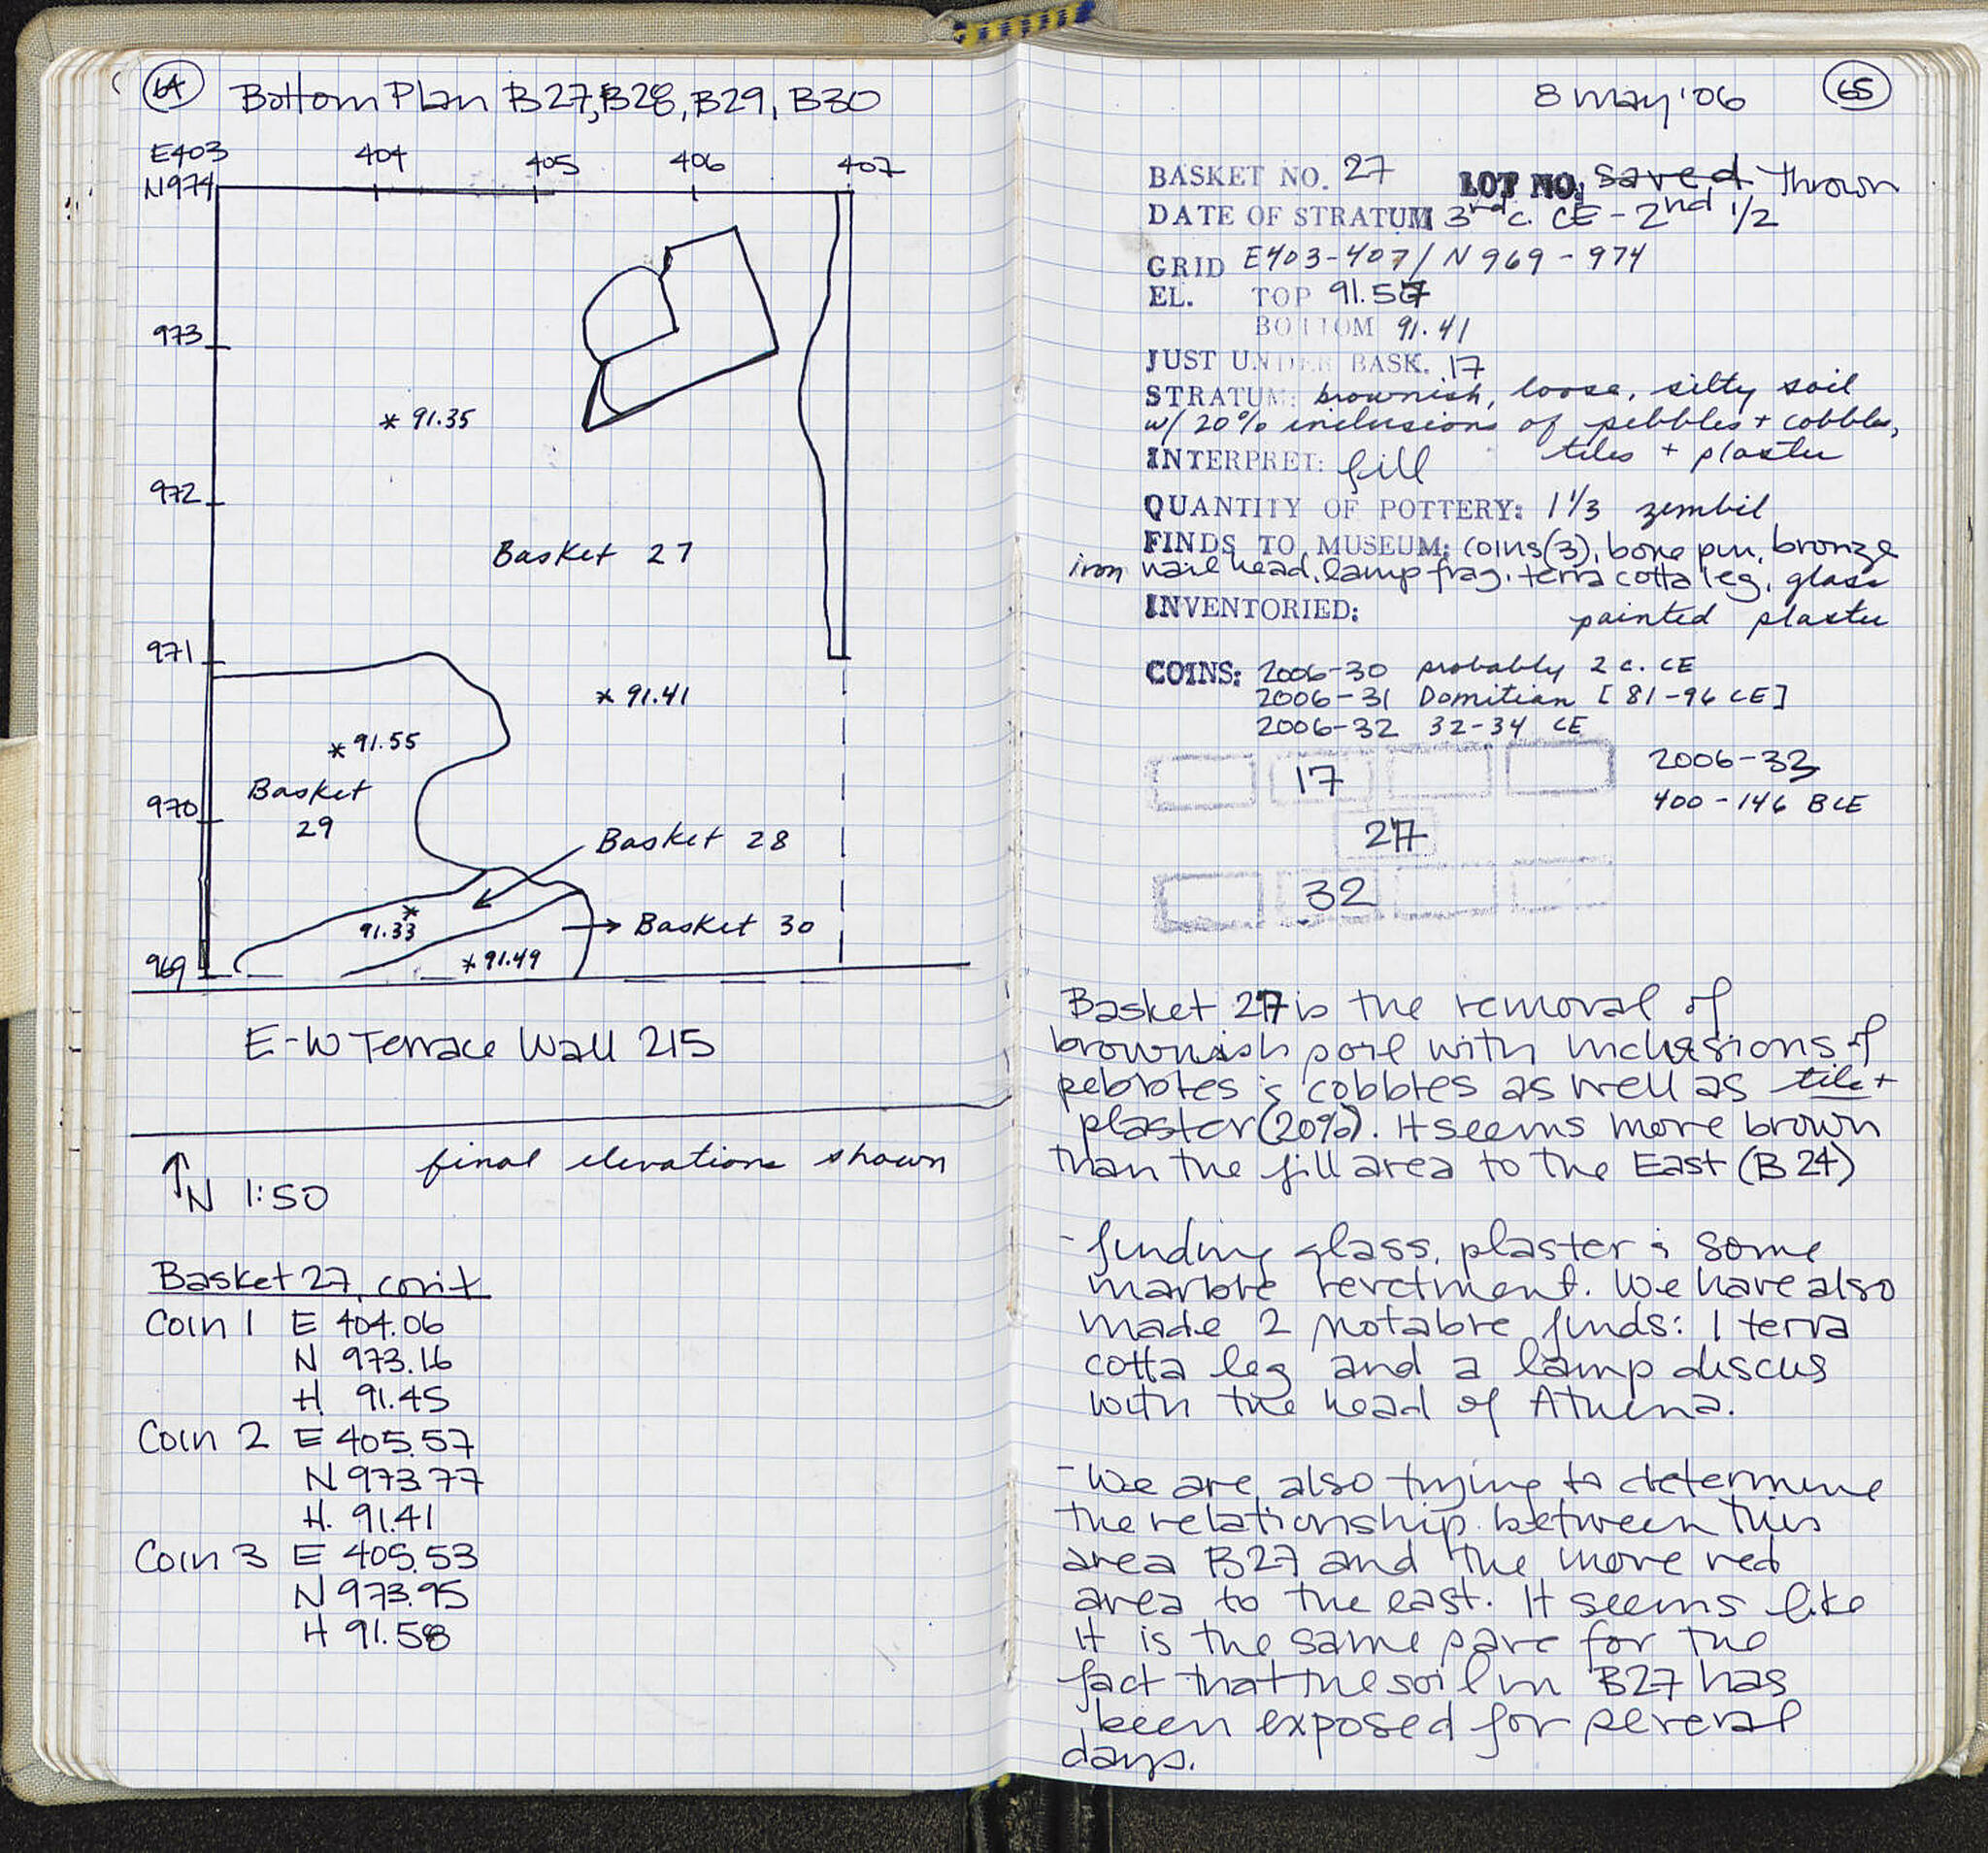 64 Bottom Plan B27, B28, B29, B30
E403 404 405 406 407
N974
973
* 91.35
972
Basket 27
971
* 91.41
* 91.55
Basket
29
970
Basket 28
* 91.33
Basket 30
* 91.49
969
E-W Terrace Wall 215
final elevations shown
N 1:50
Basket 27, con't
Coin 1 E 404.06
N 973.16
H 91.45
Coin 2 E 405.57
N 973.77
H. 91.41
Coin 3 E 405.53
N 973.95
H 91.58
8 May '06 65
BASKET NO. 27 LOT NO. saved thrown
DATE OF STRATUM 3rd c. CE - 2nd 1/2
GRID E403-407/N969-974
EL. TOP 91.57
BOTTOM 91.41
JUST UNDER BASK. 17
STRATUM: brownish, loose, silty soil
w/ 20% inclusions of pebbles + cobbles,
tiles + plaster
INTERPRET: fill
QUANTITY OF POTTERY: 1 1/3 zembil
FINDS TO MUSEUM: coins(3), bone pin, bronze
iron nail head, lamp frag. terra cotta leg, glass
INVENTORIED: painted plaster
COINS: 2006-30 probably 2 c. CE
2006-31 Domitian [81-96 CE]
2006-32 32-34 CE
2006-33
400-146 BCE
17
27
32
Basket 27 is the removal of
brownish soil with inclusions of
pebbles & cobbles as well as tile +
plaster (20%). It seems more brown
than the fill area to the East (B24)
- finding glass, plaster & some
marble revetment. We have also
made 2 notable finds: 1 terra
cotta leg and a lamp discus
with the head of Athena.
- We are also trying to determine
the relationship between this
area B27 and the more red
area to the east. It seems like
it is the same save for the
fact that the soil in B27 has
been exposed for several
days.